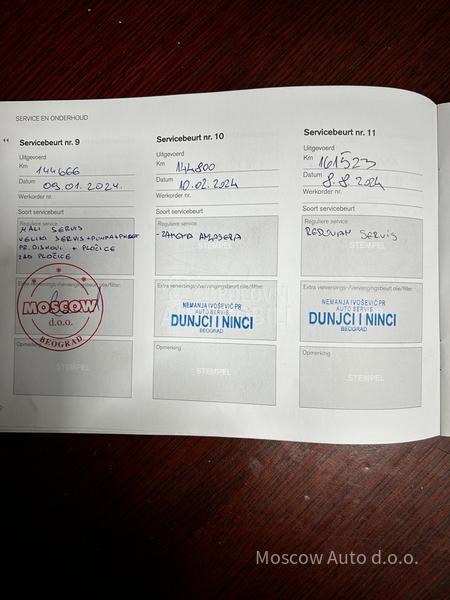 SERVICE EN ONDERHOUD
Servicebeurt nr. 9
Uitgevoerd
Km 144666
Datum 09.01.2024.
Werkorder nr.
Soort servicebeurt
Reguliere service
MALI SERVIS
VELIKI SERVIS + PUMPA +
PR. DISKOVI + PLOČICE
ZAD PLOČICE
Extra verversings-/vervangingsbeurt olie/filter:
MOSCOW
d.o.o.
BEOGRAD
Opmerking
STEMPEL
Servicebeurt nr. 10
Uitgevoerd
Km 144800
Datum 10.02.2024
Werkorder nr.
Soort servicebeurt
Reguliere service
- ZAMENA AMORERA
STEMPEL
Extra verversings-/vervangingsbeurt olie/filter:
NEMANJA IVOŠEVIĆ PR
AUTO SERVIS
DUNJCI I NINCI
BEOGRAD
Opmerking
STEMPEL
Servicebeurt nr. 11
Uitgevoerd
Km 161523
Datum 8.8.2024
Werkorder nr.
Soort servicebeurt
Reguliere service
REDOVAN SERVIS
STEMPEL
Extra verversings-/vervangingsbeurt olie/filter:
NEMANJA IVOŠEVIĆ PR
AUTO SERVIS
DUNJCI I NINCI
BEOGRAD
Opmerking
STEMPEL
Moscow Auto d.o.o.